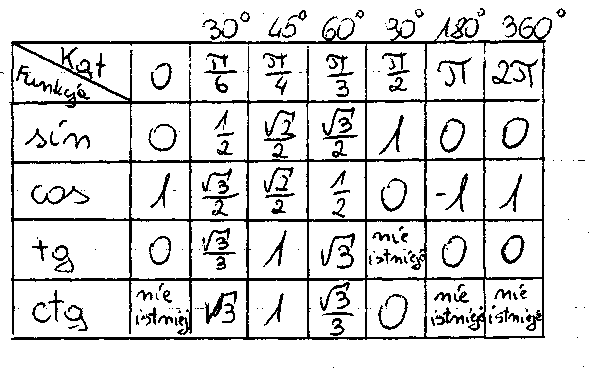 30° 45° 60° 30° 180° 360°
Kąt
Funkcja 0 π/6 π/4 π/3 π/2 π 2π
sin 0 1/2 √2/2 √3/2 1 0 0
cos 1 √3/2 √2/2 1/2 0 -1 1
tg 0 √3/3 1 √3 nie istnieje 0 0
ctg nie istnieje √3 1 √3/3 0 nie istnieje nie istnieje